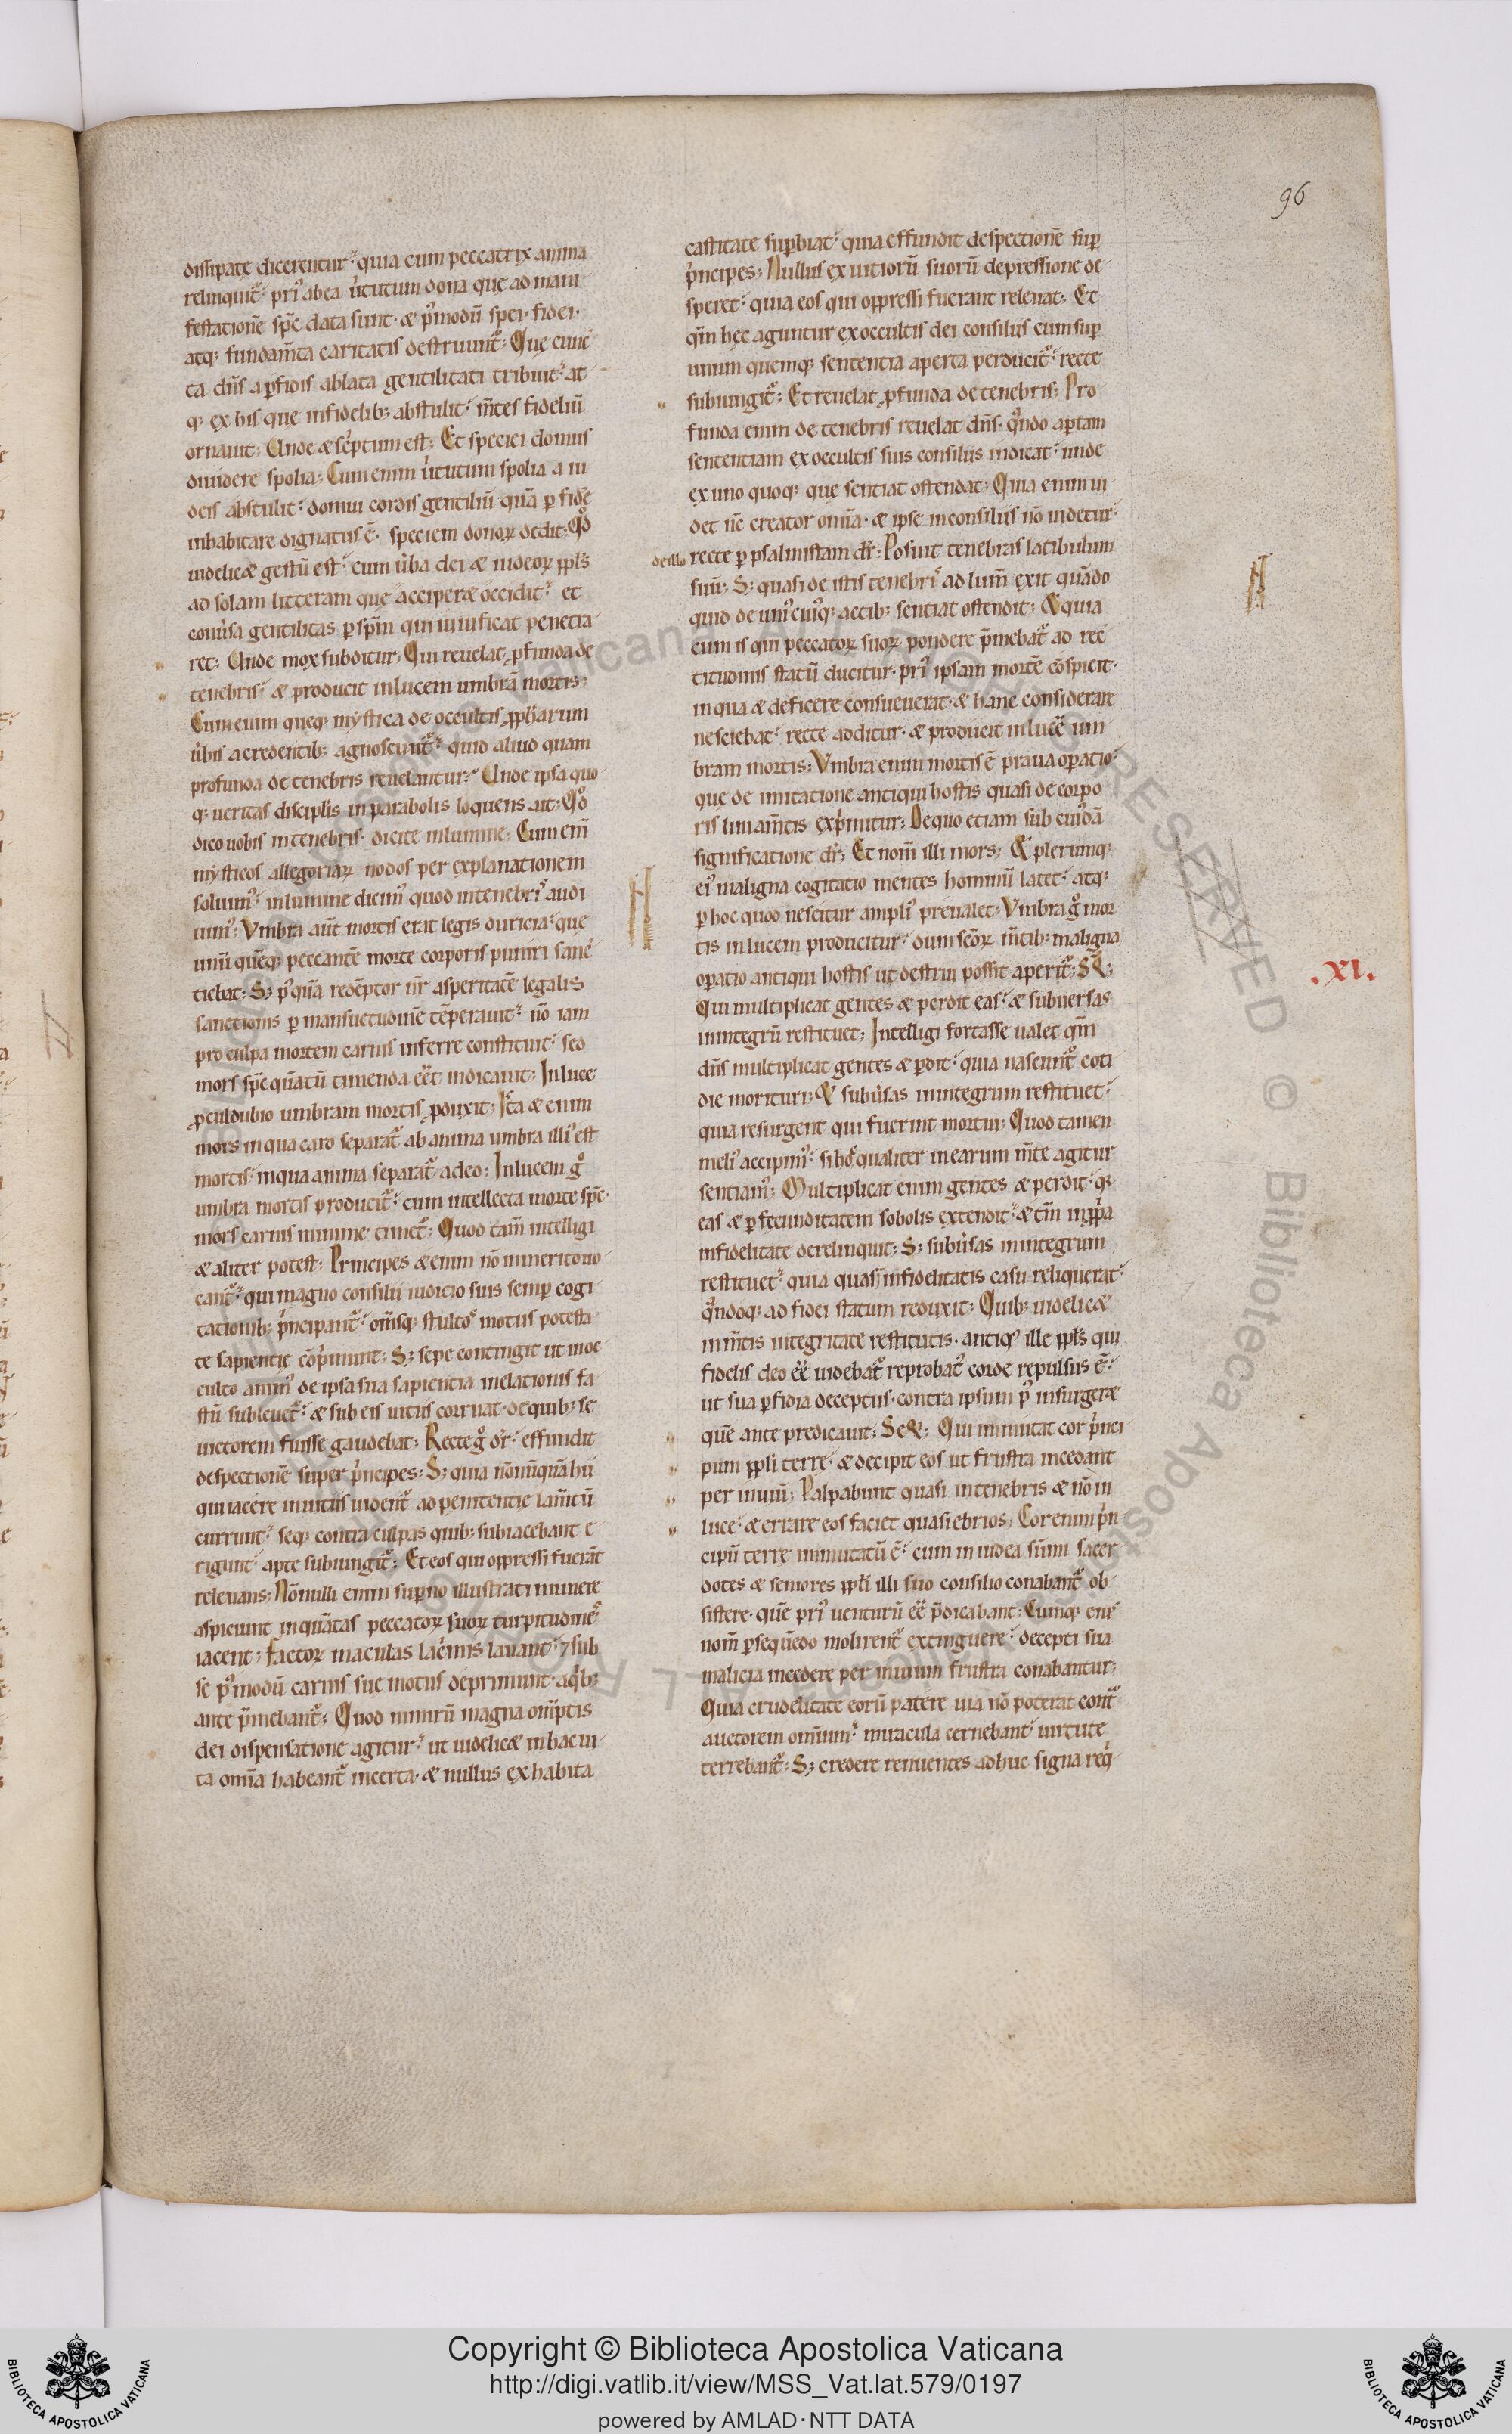 96
dissipate dicerentur. quia cum peccatrix anima
relinquit̄. pri᷒ ab ea u̓tutum dona que ad mani
festationē spc̄ data sunt. & p᷒modū spei. fidei.
atq; fundam̄ta caritatis destruunt̄. Que cunc
ta dn̄s a p̱fidis ablata gentilitati tribuit. at
q; ex his que infidelib; abstulit. m̄tes fideliū
ornauit; Unde & sc̓ptum est; Et speciei domus
diuidere spolia; Cum enim u̓tutum spolia a iu
deis abstulit. domui cordis gentiliū quā p̱ fidē
inhabitare dignatus ē. speciem donoꝝ dedit; Qd̓
uidelic& gestū est. cum u̓ba dei & iudeoꝝ pp̄ls
ad solam litteram que accipe& occidit. et
conu̓sa gentilitas p̱ sp̄m qui uiuificat penetra
ret; Unde mox subditur; Qui reuelat ꝓfunda de
tenebris. & producit in lucem umbrā mortis;
Cum enim queq; mystica de occultis ꝓph̄arum
u̓bis a credentib; agnoscunt̄. quid aliud quam
profunda de tenebris reuelantur; Unde ipsa quo
q; ueritas discipl̄is in parabolis loquens ait; Qd̓
dico uobis in tenebris. dicite in lumine; Cum em̄
mysticos allegoriaꝝ nodos per explanationem
soluim᷒. in lumine dicim᷒ quod in tenebri᷒ audi
uim᷒; Vmbra aut̄ mortis erat legis duricia. que
unū quēq; peccantē morte corporis puniri sanc
tiebat; S; p᷒quā redēptor nr̄ asperitatē legalis
sanctionis p̱ mansuetudinē tēperauit. nō iam
pro culpa mortem carnis inferre constituit. sed
mors spc̄ quātū timenda eēt indicauit; In luce
ꝓculdubio umbram mortis ꝓduxit; Ista & enim
mors in qua caro separat̄ ab anima umbra illi᷒ est
mortis. in qua anima separat̄ a deo; In lucem g̊
umbra mortis producit̄. cum intellecta morte spc̄.
mors carnis minime timet̄; Quod tam̄ intelligi
& aliter potest; Principes & enim nō inmerito uo
cant̄. qui magno consilii iudicio suis semp̱ cogi
tationib; p̓ncipant̄. om̄sq; stulto᷒ motus potesta
te sapientie cōp̓munt; S; sepe contingit ut in oc
culto anim᷒ de ipsa sua sapientia in elationis fa
stū subleuet̄. & sub eis uitiis corruat. de quib; se
uictorem fuisse gaudebat; Recte g̊ dr̄. effundit
despectionē super p̓ncipes; S; quia nōnūquā hii
qui iacere in uitiis uident̄ ad penitentie lam̄tū
currunt. seq; contra culpas quib; subiacebant e
rigunt. apte subiungit̄; Et eos qui oppressi fuerāt
releuans; Nōnulli enim sup̱no illustrati munere
aspiciunt in quātas peccatoꝝ suoꝝ turpitudine᷒
iacent; factoꝝ maculas lac̓mis lauant. ⁊ sub
se p᷒modū carnis sue motus deprimunt. a qb̓;
ante p̄mebant̄; Quod nimirū magna om̄ptis
dei dispensatione agitur. ut uidelic& in hac ui
ta om̄a habeant̄ incerta. & nullus ex habita
castitate sup̱biat. quia effundit despectionē sup̱
p̓ncipes; Nullus ex uitiorū suorū depressione de
speret. quia eos qui oppressi fuerant releuat. Et
qm̄ hec aguntur ex occultis dei consiliis cum sup̱
unum quemq; sententia aperta perducit̄. recte
subiungit̄; Et reuelat ꝓfunda de tenebris; Pro
funda enim de tenebris reuelat dn̄s. qn̓do ap̱tam
sententiam ex occultis suis consiliis indicat. unde
ex uno quoq; que sentiat ostendat; Quia enim ui
det nc̄ creator om̄a. & ipse in consiliis nō uidetur.
de illo recte p̱ psalmistam dr̄; Posuit tenebras latibulum
suū; S; quasi de istis tenebri᷒ ad lum̄ exit quādo
quid de uni᷒cui᷒q; actib; sentiat ostendit; & quia
cum is qui peccatoꝝ suoꝝ pondere p̄mebat̄ ad rec
titudinis statū ducitur. pri᷒ ipsam mortē cōspicit.
in qua & deficere consueuerat. & hanc considerare
nesciebat. recte additur. & producit in lucē um
bram mortis; Vmbra enim mortis ē praua op̱atio.
que de imitatione antiqui hostis quasi de corpo
ris liniam̄tis exp̓mitur; De quo etiam sub cui᷒dā
significatione dr̄; Et nom̄ illi mors; & plerumq;
ei᷒ maligna cogitatio mentes hominū latet. atq;
p̱ hoc quod nescitur ampli᷒ preualet; Vmbra g̊ mor
tis in lucem producitur. dum sc̄oꝝ m̄tib; maligna
op̱atio antiqui hostis ut destrui possit aperit̄; S&;
.XI.
Qui multiplicat gentes & perdit eas. & subuersas
in integrū restituet; Intelligi fortasse ualet qm̄
dn̄s multiplicat gentes & p̱dit. quia nascunt̄ coti
die morituri; & subu̓sas in integrum restituet.
quia resurgent qui fuerint mortui; Quod tamen
meli᷒ accipim᷒. si hoc̓ qualiter in earum m̄te agitur
sentiam᷒; Multiplicat enim gentes & perdit. q̱
eas & p̱ fecunditatem sobolis extendit. & tm̄ in ꝓp̓a
infidelitate derelinquit; S; subu̓sas in integrum
restituet. quia quas infidelitatis casu reliquerat.
qn̓doq; ad fidei statum reduxit; Quib; uidelic&
in m̄tis integritate restitutis. antiq᷒ ille pp̄ls qui
fidelis deo eē uidebat̄ reprobat᷒ corde repulsus ē.
ut sua p̱fidia deceptus. contra ipsum p᷒ insurger&
quē ante predicauit; Se&; Qui inmutat cor p̓nci
pum pp̄li terre. & decipit eos ut frustra incedant
per inuiū; Palpabunt quasi in tenebris & nō in
luce. & errare eos faciet quasi ebrios; Cor enim p̓n
cipū terre inmutatū ē. cum in iudea sūmi sacer
dotes & seniores pp̄li illi suo consilio conabant̄ ob
sistere. quē pri᷒ uenturū eē p̄dicabant; Cumq; ei᷒
nom̄ p̱sequēdo molirent̄ extinguere. decepti sua
malicia incedere per inuium frustra conabantur;
Quia crudelitate eorū patere uia nō poterat cont̄
auctorem om̄ium. miracula cernebant. uirtute
terrebant̄; S; credere renuentes adhuc signa req̓
Copyright © Biblioteca Apostolica Vaticana
http://digi.vatlib.it/view/MSS_Vat.lat.579/0197
powered by AMLAD·NTT DATA
BIBLIOTECA APOSTOLICA VATICANA
BIBLIOTECA APOSTOLICA VATICANA